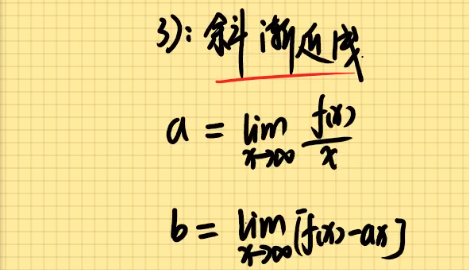 3): 斜渐近线
a = lim_{x→∞} f(x)/x
b = lim_{x→∞} [f(x)-ax]